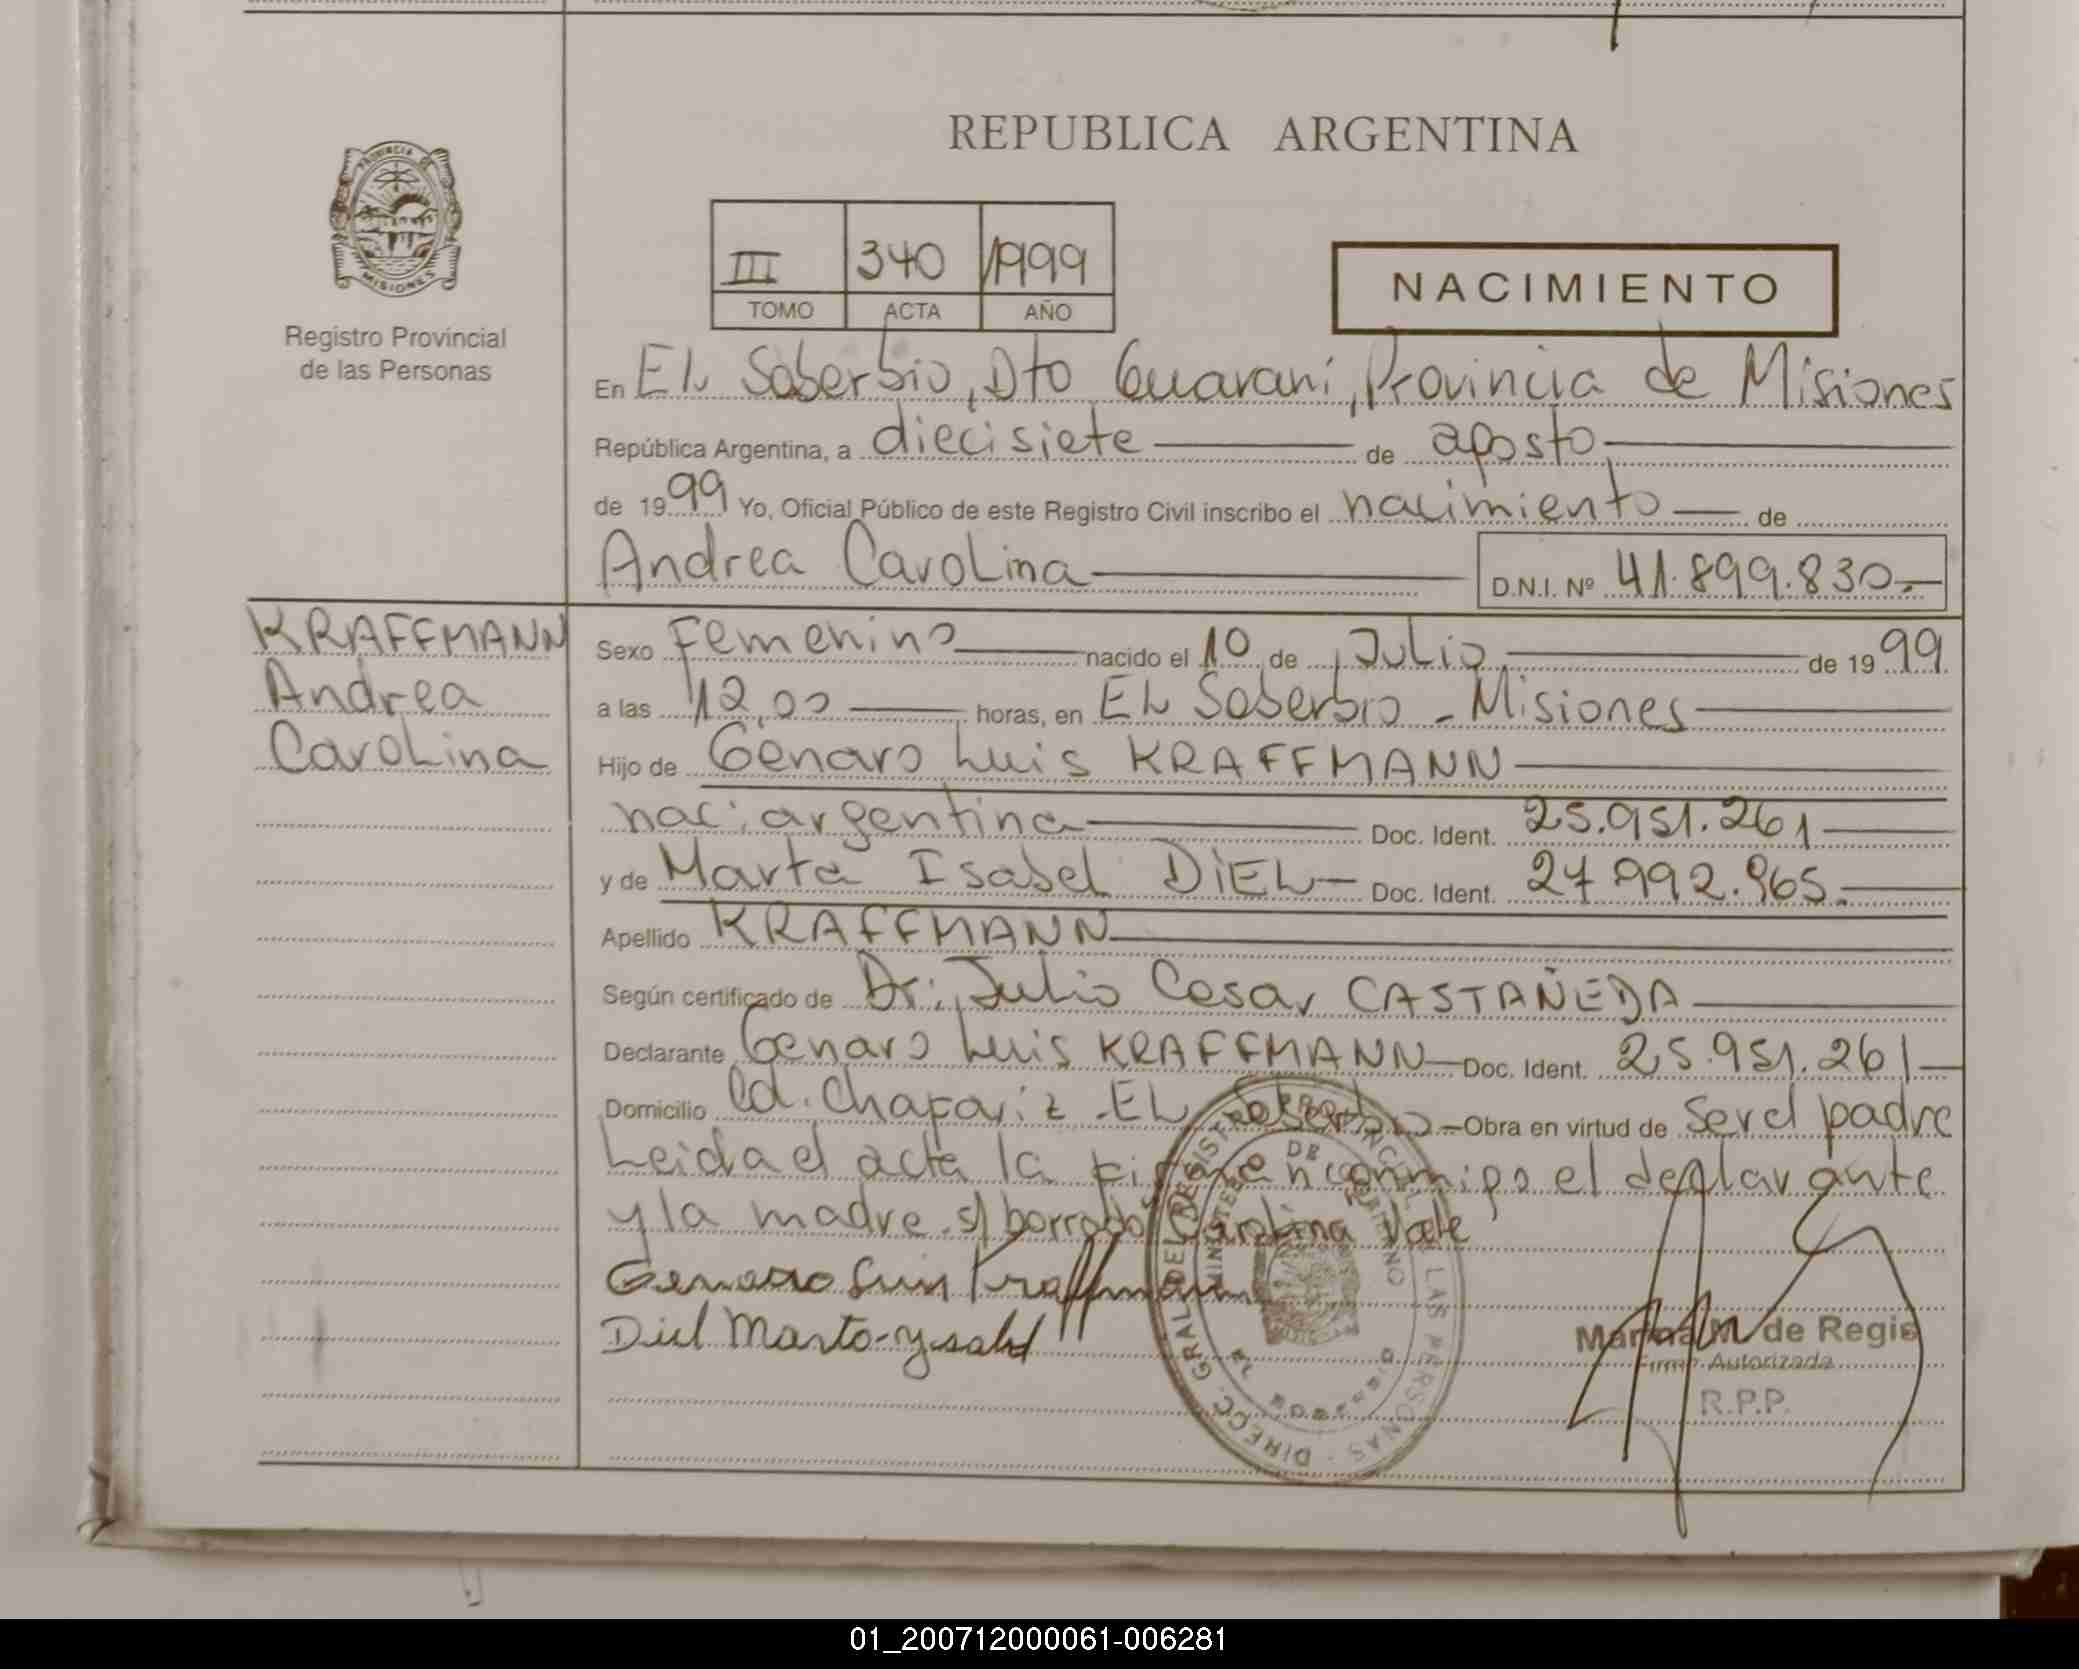 REPUBLICA ARGENTINA
PROVINCIA DE
MISIONES
Registro Provincial
de las Personas
III 340 1999
TOMO ACTA AÑO
NACIMIENTO
En EL Soberbio, Dto Guaraní, Provincia de Misiones
República Argentina, a diecisiete de agosto
de 1999 Yo, Oficial Público de este Registro Civil inscribo el nacimiento de
Andrea Carolina D.N.I. Nº 41.899.830.-
KRAFFMANN
Andrea
Carolina
Sexo Femenino nacido el 10 de Julio de 1999
a las 12,00 horas, en EL Soberbio - Misiones
Hijo de Genaro Luis KRAFFMANN
nac: argentina Doc. Ident. 25.951.261
y de Marta Isabel DIEL Doc. Ident. 27.992.965.
Apellido KRAFFMANN
Según certificado de Dr. Julio Cesar CASTAÑEDA
Declarante Genaro Luis KRAFFMANN Doc. Ident. 25.951.261
Domicilio Cd. Chafariz - EL Soberbio Obra en virtud de ser el padre
Leida el acta la firman conmigo el declarante
y la madre. s/ borrado: Carolina Vale
Genaro Luis Kraffmann
Diel Marta Ysabel
DIRECC. GRAL. DEL REGISTRO PROVINCIAL DE LAS PERSONAS
MINISTERIO DE
Marina M. de Regis
Firma Autorizada
R.P.P.
01_200712000061-006281